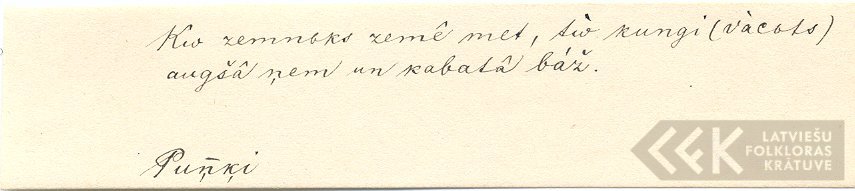 Kw zemnoks zemê met, tẁ kungi (vàcots)
augšâ ņem un kabatâ báž.
Puņ̃ķi
LATVIEŠU
FOLKLORAS
KRĀTUVE